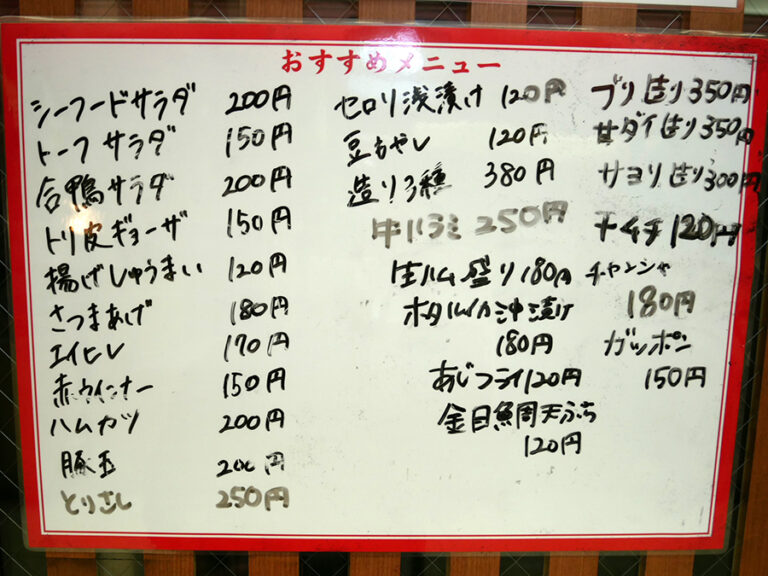 おすすめメニュー
シーフードサラダ 200円
トーフサラダ 150円
合鴨サラダ 200円
トリ皮ギョーザ 150円
揚げしゅうまい 120円
さつまあげ 180円
エイヒレ 170円
赤ウインナー 150円
ハムカツ 200円
豚玉 200円
とりさし 250円
セロリ浅漬け 120円
豆もやし 120円
造り3種 380円
牛ハラミ 250円
生ハム盛り 180円
ホタルイカ沖漬け
180円
あじフライ 120円
金目鯛天ぷら
120円
ブリ造り 350円
甘ダイ造り 350円
サヨリ造り 300円
120円
チャンジャ
180円
ガツポン
150円